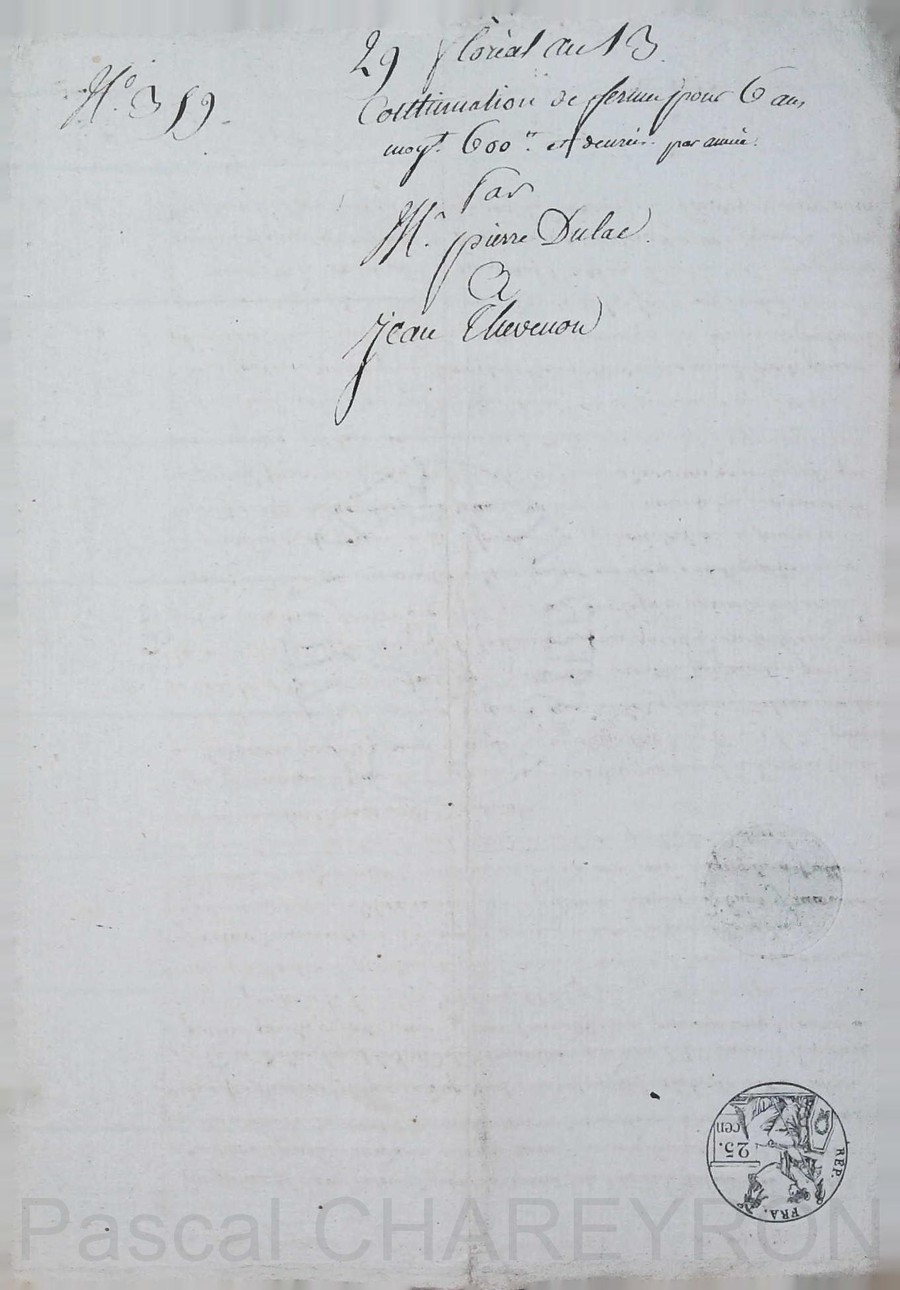 29 floréal an 13
N.º 319.
Continuation de fferme pour 6 ans
moyt. 600 tt et denrées par année.
Par
Mr. pierre Dulac
a
Jean Thevenon
25.
cen
REP.
FRA.
Pascal CHAREYRON